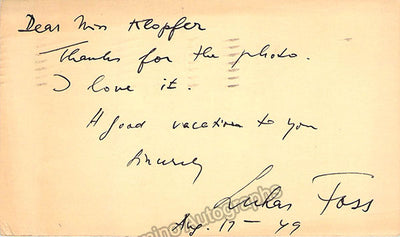 Dear Miss Klopfer
Thanks for the photo.
I love it.
A good vacation to you
Sincerely
Lukas Foss
Aug. 17 - 49